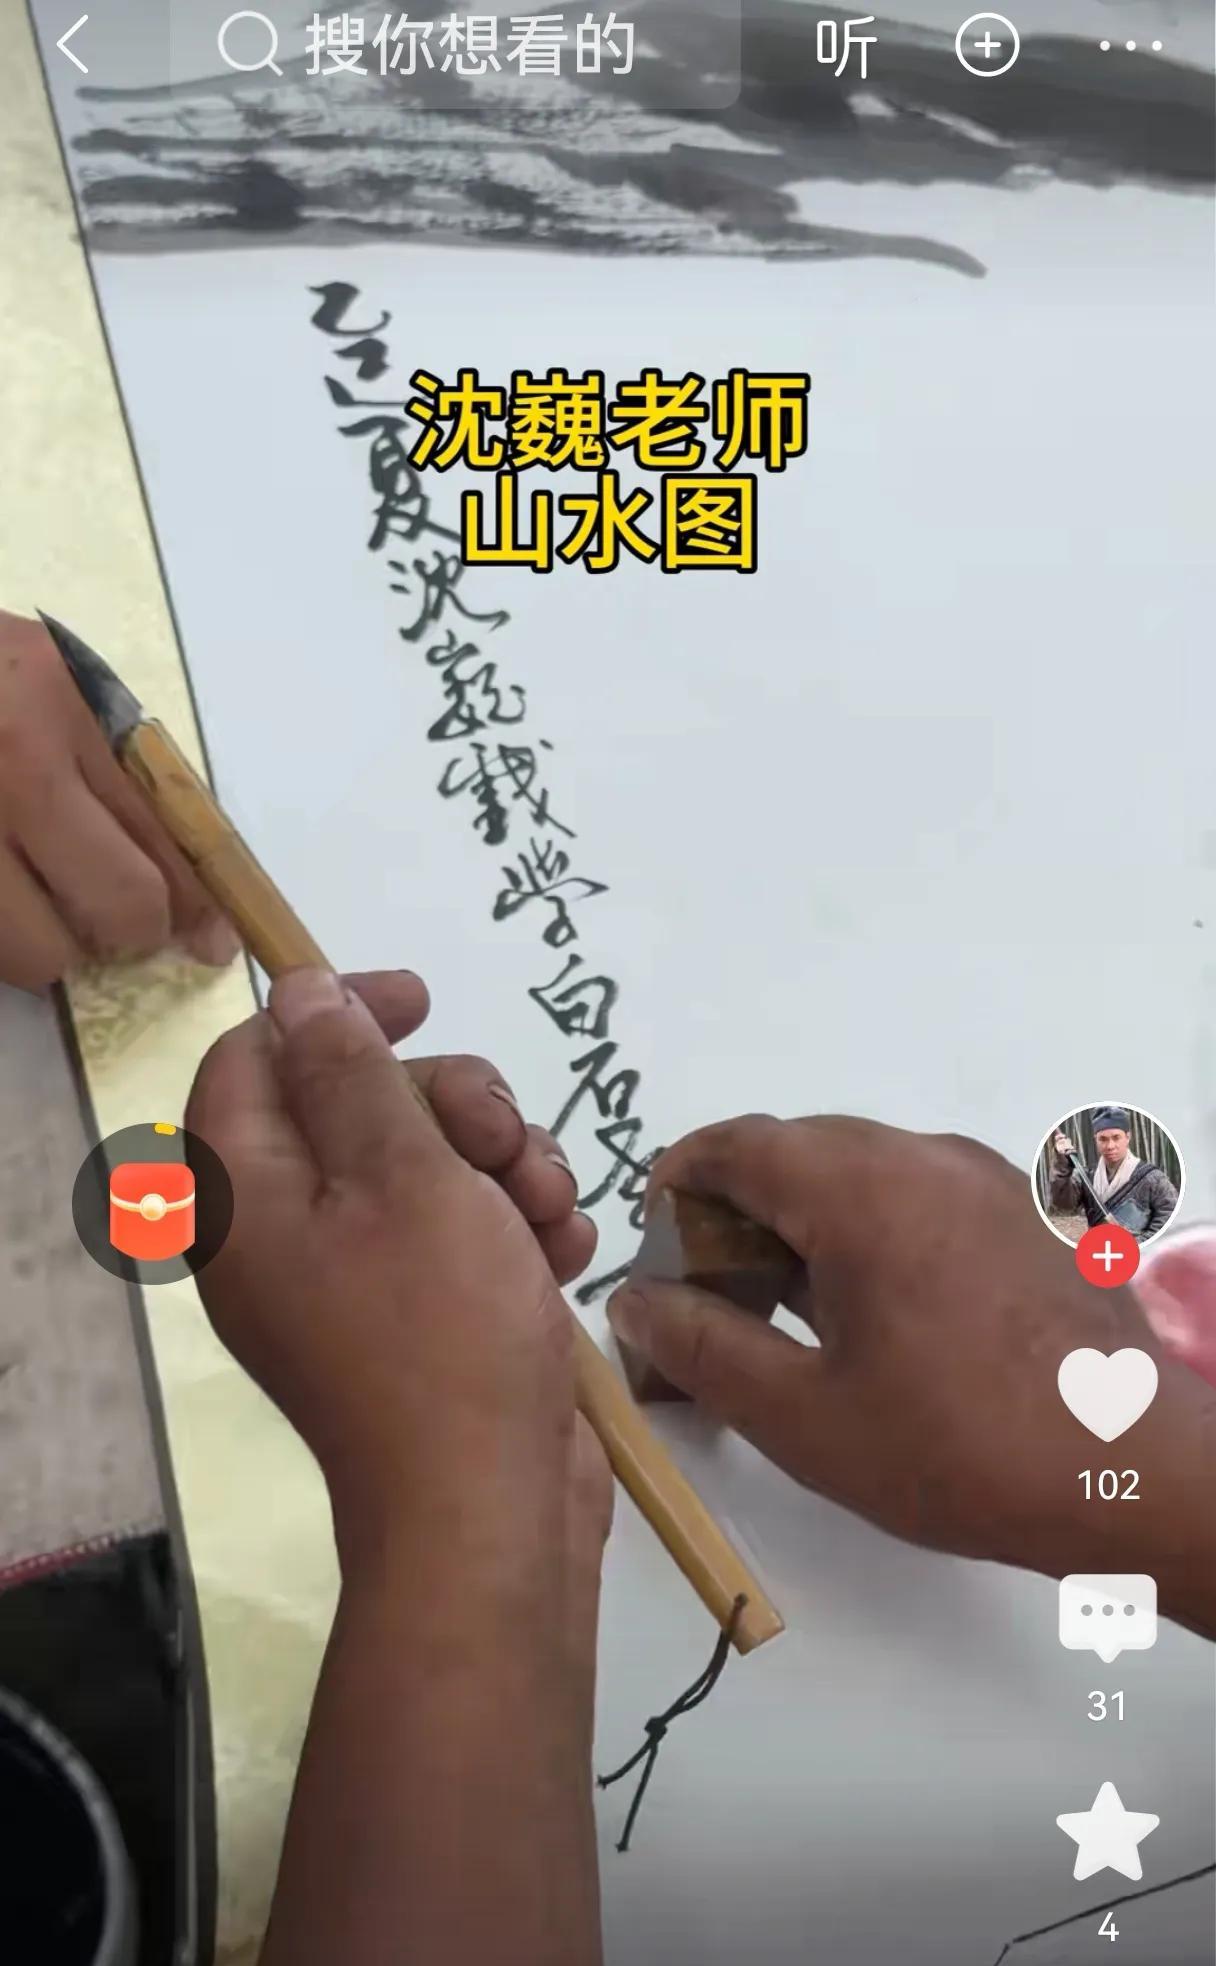 搜你想看的
听
沈巍老师
山水图
乙巳夏沈巍戏学白石
102
31
4